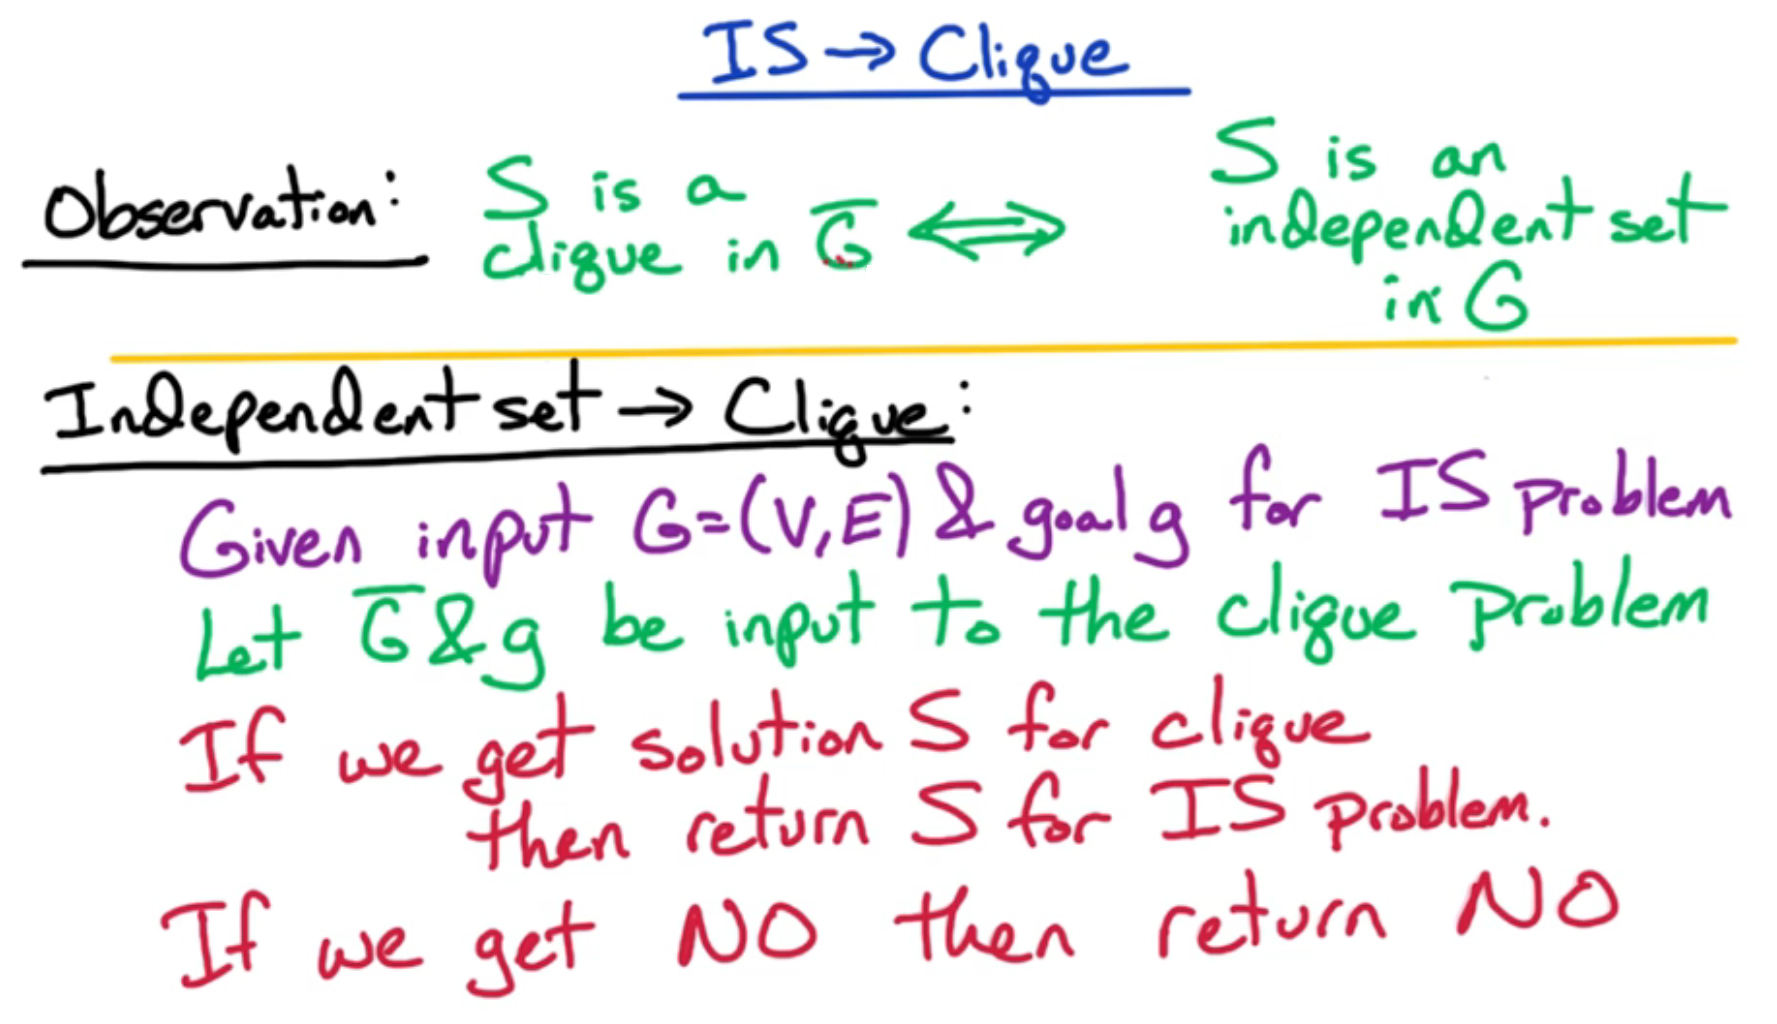 IS → Clique
Observation: S is a clique in G̅ ⟺ S is an independent set in G
Independent set → Clique:
Given input G=(V,E) & goal g for IS problem
Let G̅ & g be input to the clique problem
If we get solution S for clique
then return S for IS problem.
If we get NO then return NO